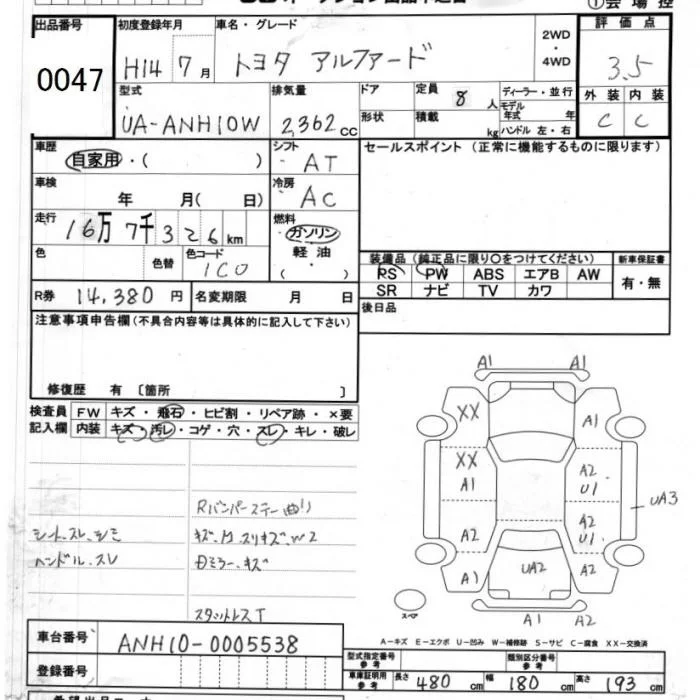 ①会場控
出品番号 0047
初度登録年月 H14 7月
車名・グレード トヨタ アルファード
2WD・4WD
評価点 3.5
外装 C 内装 C
型式 UA-ANH10W
排気量 2,362 cc
ドア
定員 8 人
形状
積載 kg
ディーラー・並行
モデル年式 年
ハンドル 左・右
車歴 自家用・( )
シフト AT
セールスポイント(正常に機能するものに限ります)
車検 年 月( 日)
冷房 AC
走行 16万7千326km
燃料 ガソリン
軽油
( )
色 色替 色コード 1C0
装備品(純正品に限り○をつけてください)
新車保証書
PS PW ABS エアB AW
有・無
SR ナビ TV カワ
R券 14,380円
名変期限 月 日
後日品
注意事項申告欄(不具合内容等は具体的に記入して下さい)
修復歴 有 〔箇所 〕
検査員記入欄
FW キズ・飛石・ヒビ割・リペア跡・×要
内装 キズ・汚レ・コゲ・穴・スレ・キレ・破レ
Rバンパーステー曲り
シート.スレ.シミ
ハンドル.スレ
Dミラー.キズ
スタットレスT
A1 A1
XX A1
XX A2
A1 U1
UA3
A2 A2
U1
A1 UA2 A2
A1 A2
スペア
A-キズ E-エクボ U-凹み W-補修跡 S-サビ C-腐食 XX-交換済
車台番号 ANH10-0005538
登録番号
型式指定番号 参考
類別区分番号 参考
車庫証明用参考 長さ 480 cm 幅 180 cm 高さ 193 cm